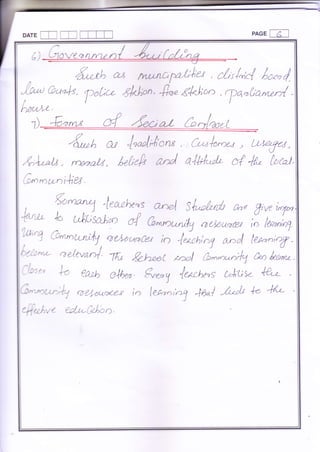 DATE
PAGE 6
6) Government building
Such as muncipalities, district board,
Law Courts, police station, fire station, parliament -
house.
7) Forms of Social Control
Such as traditions, Customs, usages,
rituals, morals, beliefs and attitude of the local
Communities.
So many teachers and Students are give impor-
tance to utilisation of Community resources in learning
Using Community resources in teaching and learning.
become relevant The School and Community can become
Closer to each other. Every teachers utilise the
Community resources in learning that leads to the
effective education.